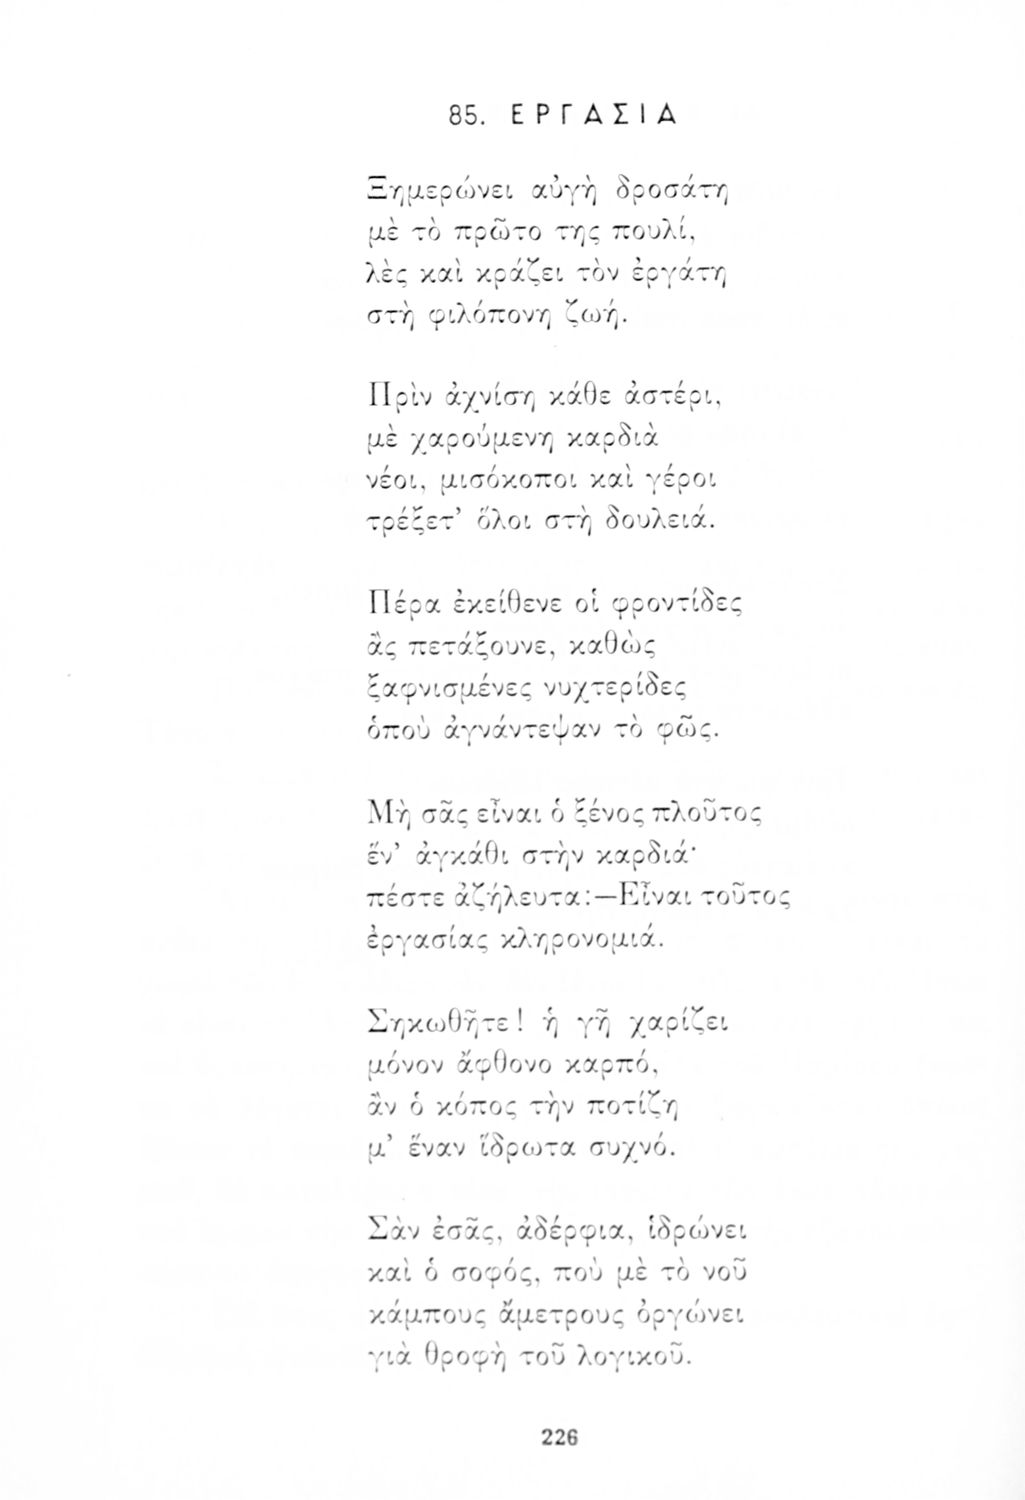 85. ΕΡΓΑΣΙΑ
Ξημερώνει αὐγὴ δροσάτη
μὲ τὸ πρῶτο της πουλί,
λὲς καὶ κράζει τὸν ἐργάτη
στὴ φιλόπονη ζωή.
Πρὶν ἀχνίση κάθε ἀστέρι,
μὲ χαρούμενη καρδιὰ
νέοι, μισόκοποι καὶ γέροι
τρέξετ’ ὅλοι στὴ δουλειά.
Πέρα ἐκείθενε οἱ φροντίδες
ἂς πετάξουνε, καθὼς
ξαφνισμένες νυχτερίδες
ὁποὺ ἀγνάντεψαν τὸ φῶς.
Μὴ σᾶς εἶναι ὁ ξένος πλοῦτος
ἕν’ ἀγκάθι στὴν καρδιά·
πέστε ἀζήλευτα:—Εἶναι τοῦτος
ἐργασίας κληρονομιά.
Σηκωθῆτε! ἡ γῆ χαρίζει
μόνον ἄφθονο καρπό,
ἂν ὁ κόπος τὴν ποτίζη
μ’ ἕναν ἵδρωτα συχνό.
Σὰν ἐσᾶς, ἀδέρφια, ἱδρώνει
καὶ ὁ σοφός, ποὺ μὲ τὸ νοῦ
κάμπους ἄμετρους ὀργώνει
γιὰ θροφὴ τοῦ λογικοῦ.
226